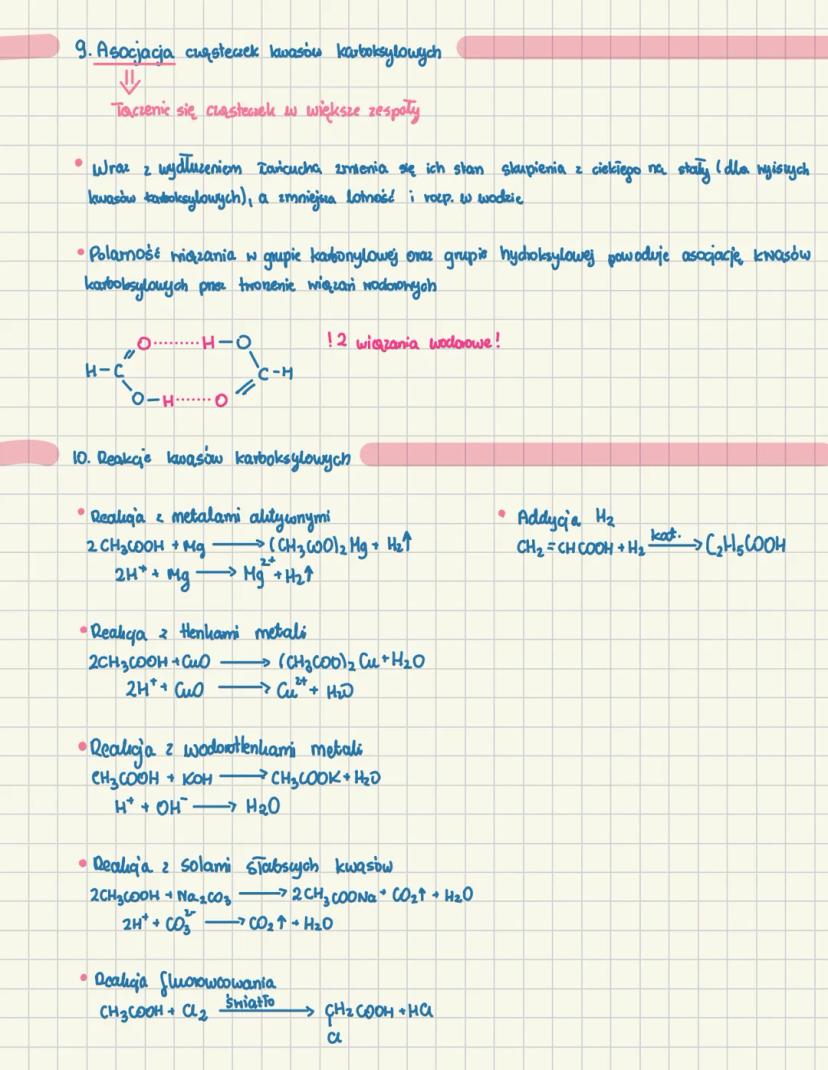 9. Asocjacja cząsteczek kwasów karboksylowych
⇓
Łączenie się cząsteczek w większe zespoły
• Wraz z wydłużeniem łańcucha zmienia się ich stan skupienia z ciekłego na stały (dla wyższych
kwasów karboksylowych), a zmniejsza lotność i rozp. w wodzie
• Polarność wiązania w grupie karbonylowej oraz grupie hydroksylowej powoduje asocjację kwasów
karboksylowych przez tworzenie wiązań wodorowych
O·········H—O !2 wiązania wodorowe!
H—C C—H
O—H·······O
10. Reakcje kwasów karboksylowych
• Reakcja z metalami aktywnymi
2CH₃COOH + Mg ⟶ (CH₃COO)₂Mg + H₂↑
2H⁺ + Mg ⟶ Mg²⁺ + H₂↑
• Reakcja z tlenkami metali
2CH₃COOH + CuO ⟶ (CH₃COO)₂Cu + H₂O
2H⁺ + CuO ⟶ Cu²⁺ + H₂O
• Reakcja z wodorotlenkami metali
CH₃COOH + KOH ⟶ CH₃COOK + H₂O
H⁺ + OH⁻ ⟶ H₂O
• Reakcja z solami słabszych kwasów
2CH₃COOH + Na₂CO₃ ⟶ 2CH₃COONa + CO₂↑ + H₂O
2H⁺ + CO₃²⁻ ⟶ CO₂↑ + H₂O
• Reakcja fluorowcowania
światło
CH₃COOH + Cl₂ ⟶ CH₂COOH + HCl
Cl
• Addycja H₂
kat.
CH₂=CHCOOH + H₂ ⟶ C₂H₅COOH